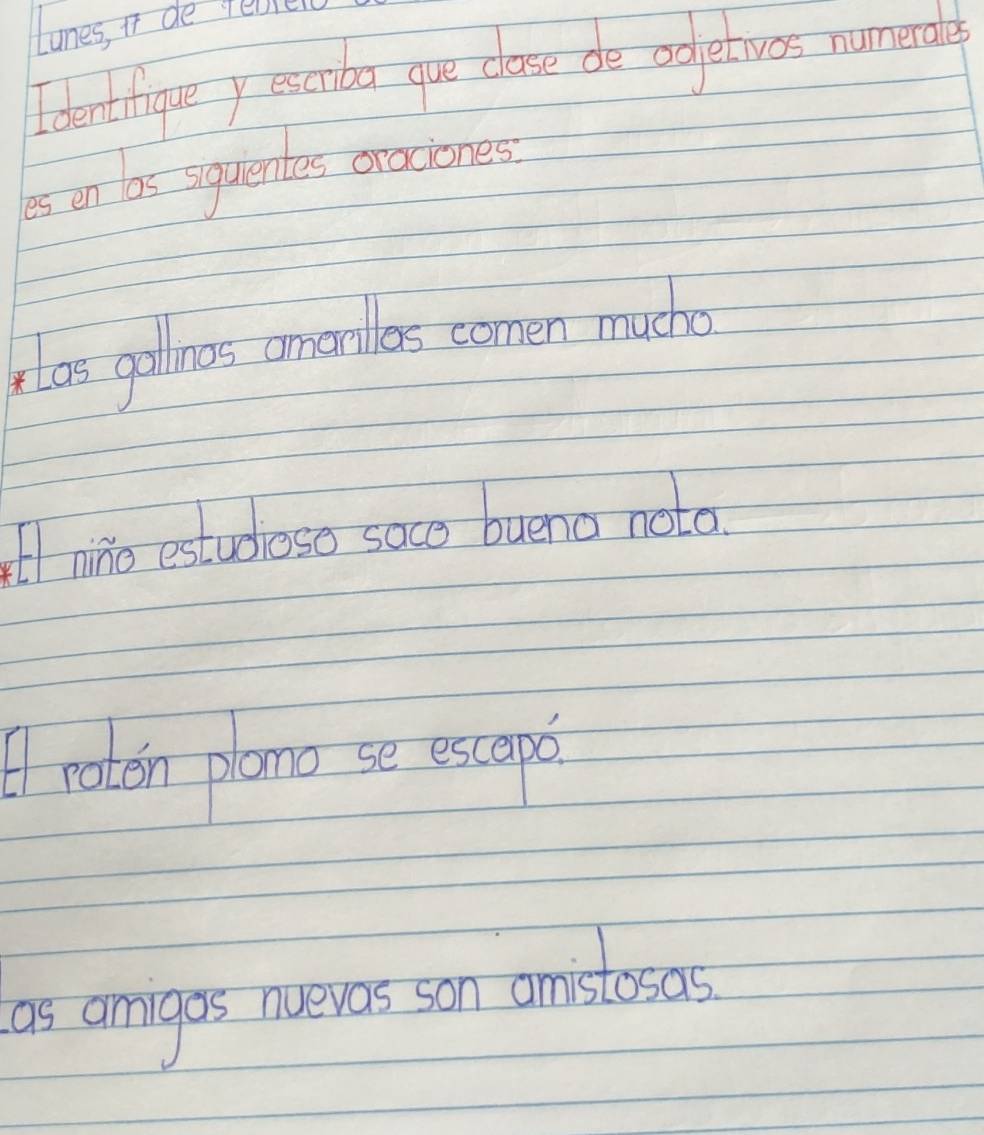 Lunes, de
Identifique y escriba que clase de adjetivos numerales
es en las siguientes oraciones:
* Las gallinas amarillas comen mucho.
* El niño estudioso saco buena nota.
El ratón plomo se escapó.
Las amigas nuevas son amistosas.